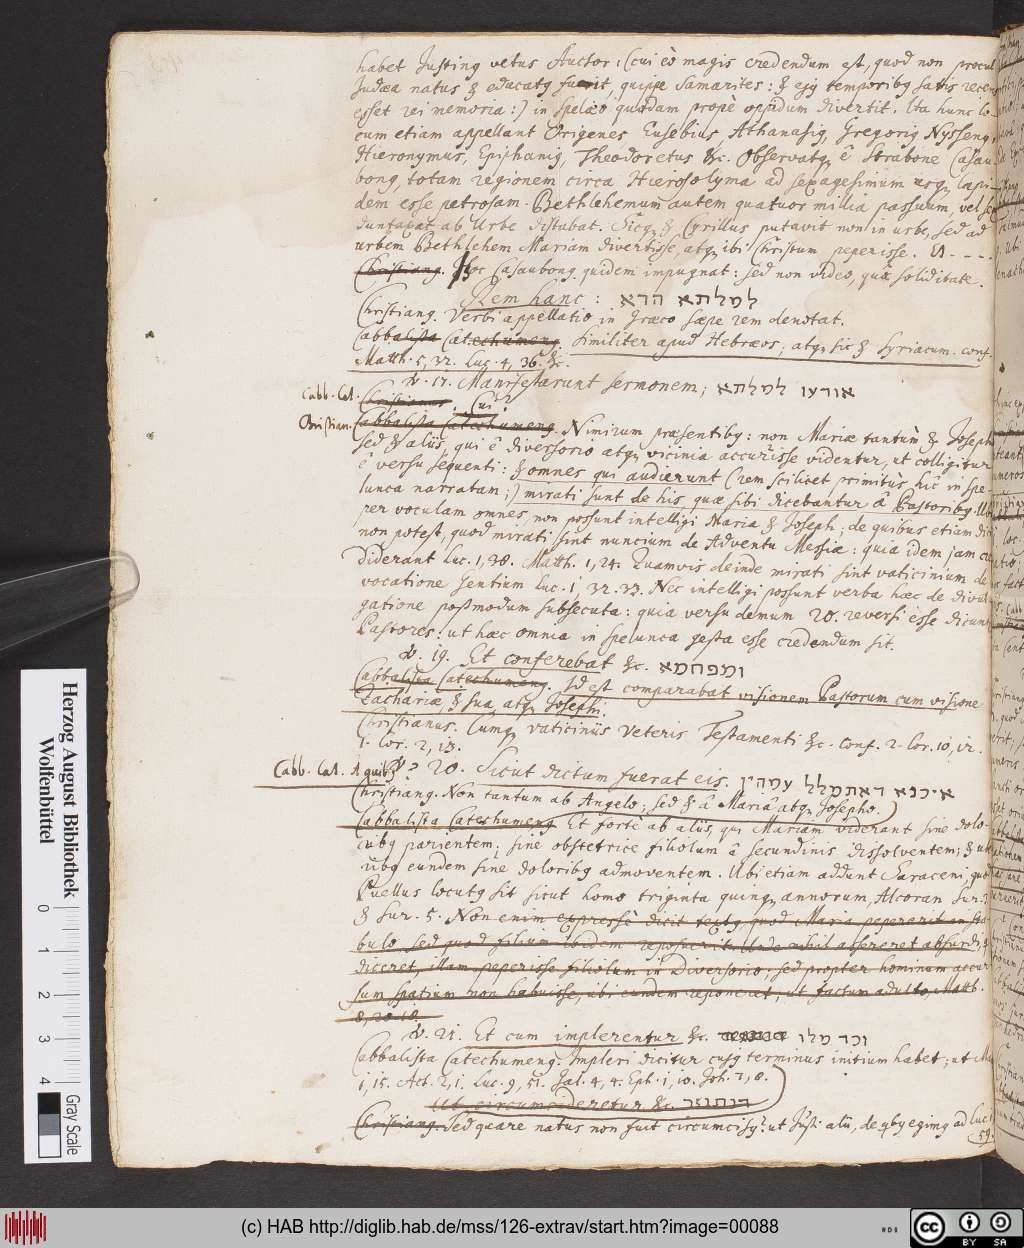 habet Justinꝰ vetus Auctor: (cui eò magis credendum est, quod non procul
Judæa natus & educatꝰ fuerit, quippe Samarites: & ejꝰ temporibꝰ satis recens
esset rei memoria:) in spelæo quodam propè oppidum divertit. Ita hunc lo-
cum etiam appellant Origenes, Eusebius, Athanasiꝰ, Gregoriꝰ Nyssenꝰ,
Hieronymus, Epiphaniꝰ, Theodoretus &c. Observatqꝫ è Strabone Casau-
bonꝰ, totam regionem circa Hierosolyma ad sexagesimum usqꝫ lapi-
dem esse petrosam. Bethlehemum autem quatuor millia passuum, vel
duntaxat ab Urbe distabat. Sicqꝫ & Cyrillus putavit non in urbe, sed ad
urbem Bethlehem Mariam divertisse, atqꝫ ibi Christum peperisse.
Christianꝰ. Hoc Casaubonꝰ quidem impugnat: sed non video, quâ soliditate.
Rem hanc: למלתא הדא
Christianꝰ. Verbi appellatio in Græco sæpe rem denotat.
Cabbalista Catechumenꝰ. Similiter apud Hebræos, atqꝫ sic & Syriacum. conf.
Matth. 5, 32. Luc. 4, 36. &c.
v. 17. Manifestarunt sermonem; אודעו למלתא
Cabb. Cat. Christianus. Cui?
Christian. Cabbalista Catechumenꝰ. Nimirum præsentibꝰ: non Mariæ tantùm & Joseph
sed & aliis, qui è diversorio atqꝫ vicinia accurrisse videntur, ut colligitur
è versu sequenti: & omnes qui audierunt (rem scilicet primitùs hîc in spe-
lunca narratam;) mirati sunt de his quæ sibi dicebantur â Pastoribꝰ. Ubi
per voculam omnes, non possunt intelligi Maria & Joseph, de quibus etiam dici
non potest, quod mirati sint nuncium de Adventu Messiæ: quia idem jam cre
diderant Luc. 1, 38. Matth. 1, 24. Quamvis deinde mirati sint vaticinium de
vocatione Gentium Luc. 1, 32. 33. Nec intelligi possunt verba hæc de divul-
gatione postmodum subsecuta: quia versu demum 20. reversi esse dicunt
Pastores: ut hæc omnia in spelunca gesta esse credendum sit.
v. 19. Et conferebat &c. ומפחמא
Cabbalista Catechumenꝰ. Id est comparabat visionem Pastorum cum visione
Zachariæ, & sua, atqꝫ Josephi.
Christianus. Cumqꝫ vaticiniis Veteris Testamenti &c. conf. 2. Cor. 10, 12.
1. Cor. 2, 13.
Cabb. Cat. A quibꝰ? v. 20. Sicut dictum fuerat eis. איכנא דאתמלל עמהין
Christianꝰ. Non tantum ab Angelo; sed & â Mariâ atqꝫ Josepho.
Cabbalista Catechumenꝰ Et fortè ab aliis, qui Mariam viderant sine dolo-
ribꝰ parientem; sine obstetrice filiolum â secundinis dissolventem; & ube-
ribꝰ eundem sine doloribꝰ admoventem. Ubi etiam addunt Saraceni, quod
Puellus locutꝰ sit sicut homo triginta quinqꝫ annorum, Alcoran Sur. 3.
& Sur. 5. Non enim expressè dicit textꝰ, quod Maria pepererit in sta-
bulo sed quod filium ibidem reposuerit. Unde nihil asserèret absurdi, qui
diceret, illam peperisse filiolum in Diversorio; sed propter hominum accur
sum spatium non habuisse, ubi eundem reponeret, ut factum adulto, Matth.
8, 20.
v. 21. Et cum implerentur &c. וכד מלו
Cabbalista Catechumenꝰ. Impleri dicitur cujꝰ terminus initium habet; ut
1, 15. Act. 2, 1. Luc. 9, 51. Gal. 4, 4. Eph. 1, 10. Joh. 7, 8.
Ut circumcideretur &c. דנתגזר
Christianꝰ. Sed quare natus non fuit circumcisꝰ? ut Justi alii, de qbꝰ egimꝰ ad Luc. 1
59.
Herzog August Bibliothek
Wolfenbüttel
0 1 2 3 4
Gray Scale
(c) HAB http://diglib.hab.de/mss/126-extrav/start.htm?image=00088
HAB
cc BY SA